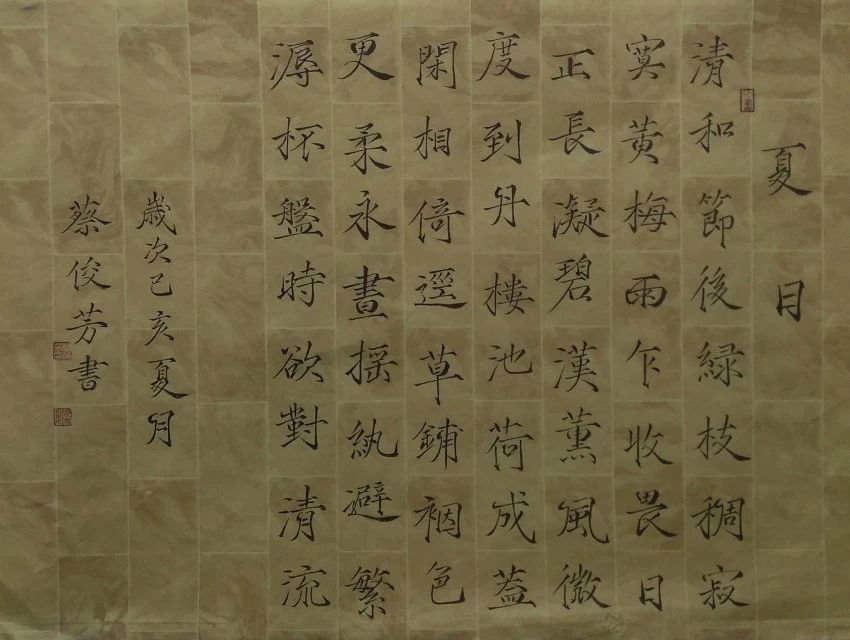 夏日
清和節後緑枝稠寂
寞黄梅雨乍收畏日
正長凝碧漢薰風微
度到丹樓池荷成蓋
閑相倚逕草鋪裀色
更柔永晝摇紈避繁
溽杯盤時欲對清流
歲次己亥夏月
蔡俊芳書